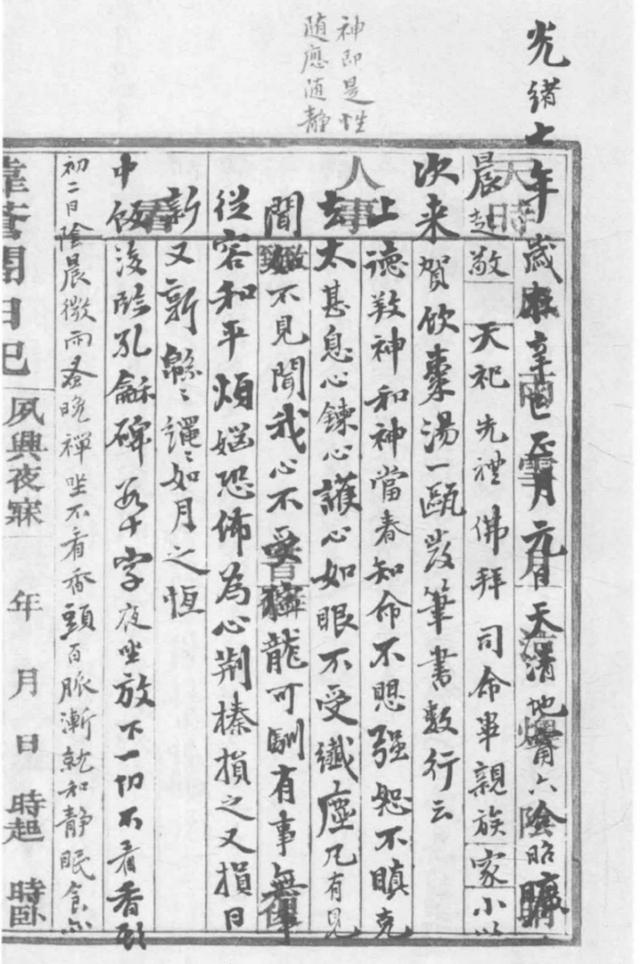 神即是性
随應随静
光緒七年歲在辛巳正月元日天清地甯六陰昭曠
晨起敬天祀先禮佛拜司命畢親族家小以
次来賀飲棗湯一甌發筆書數行云
上德教神和神當春知命不愳强恕不瞋克
去太甚息心鍊心護心如眼不受纖塵凡有見
聞如不見聞我心不受獰龍可馴有事無事
從容和平煩惱恐怖為心荆榛損之又損日
新又新緜緜繩繩如月之恆
中飯後臨孔龢碑若干字夜坐放下一切不看香頭
初二日陰晨微雨 晚禪坐不看香頭百脈漸就和静眠食
日記
夙興夜寐 年 月 日 時起 時卧